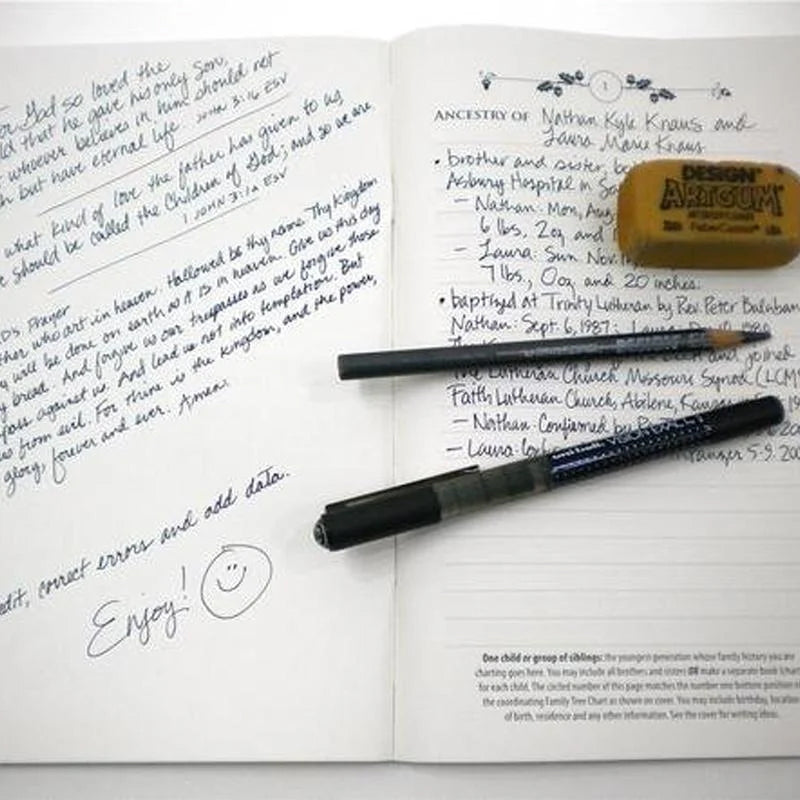 God so loved the
that he gave his only Son,
whoever believes in him should not
but have eternal life. JOHN 3:16 ESV
what kind of love the father has given to us,
should be called the Children of God; and so we are
1 JOHN 3:1A ESV
Prayer
who art in heaven. Hallowed be thy name. Thy Kingdom
will be done on earth as it is in heaven. Give us this day
bread. And forgive us our trespasses as we forgive those
against us. And lead us not into temptation. But
us from evil. For thine is the kingdom, and the power,
glory, forever and ever. Amen.
edit, correct errors and add data.
Enjoy!
1
ANCESTRY OF Nathan Kyle Knaus and
Laura Marie Knaus
• brother and sister,
Asbury Hospital in
– Nathan: Mon, Aug
6 lbs, 2oz and
– Laura: Sun Nov.
7 lbs, 0oz and 20 inches.
• baptized at Trinity Lutheran by Rev. Peter
Nathan: Sept. 6, 1987;
and joined
The Lutheran Church Missouri Synod
Faith Lutheran Church, Abilene,
– Nathan: Confirmed by
– Laura: 5-9.
DESIGN
ARTGUM
One child or group of siblings: the youngest generation whose family history you are
charting goes here. You may include all brothers and sisters OR make a separate book
for each child. The circled number of this page matches the number one bottom position
the coordinating Family Tree Chart as shown on cover. You may include birthday, location
of birth, residence and any other information. See the cover for writing ideas.